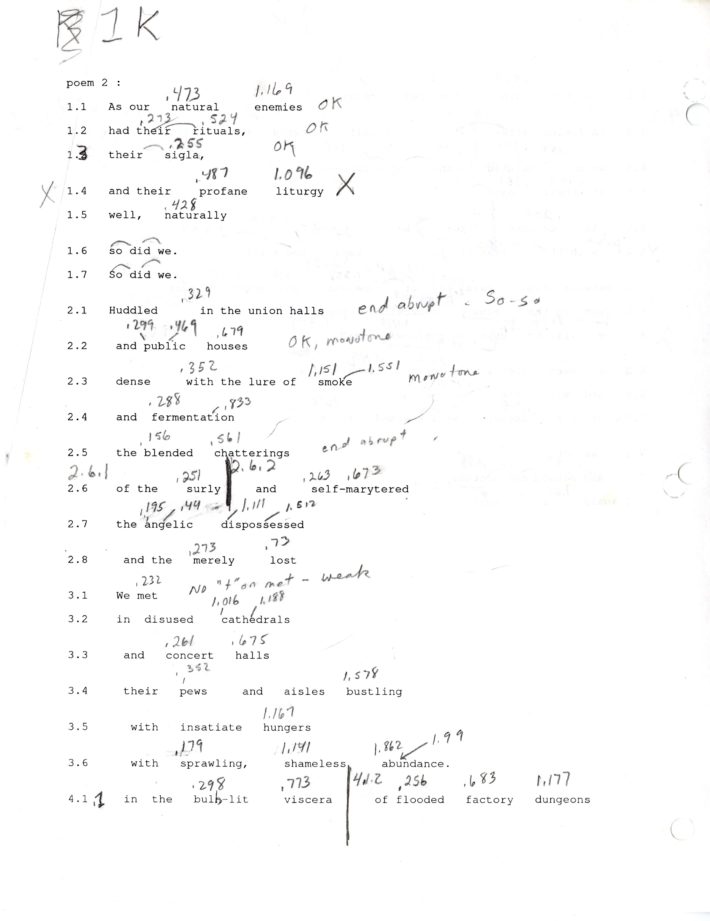 1K
poem 2 :
.473 1.169
1.1 As our natural enemies OK
.273 .524
1.2 had their rituals, OK
.255
1.3 their sigla, OK
.487 1.096
X 1.4 and their profane liturgy X
.428
1.5 well, naturally
1.6 so did we.
1.7 So did we.
.329
2.1 Huddled in the union halls end abrupt - So-so
.299 .469 .679
2.2 and public houses OK, monotone
.352 1,151 1.551
2.3 dense with the lure of smoke monotone
.288 .833
2.4 and fermentation
.156 .561
2.5 the blended chatterings end abrupt
2.6.1 .251 2.6.2 .263 .673
2.6 of the surly and self-marytered
.195 .44 1.111 1.512
2.7 the angelic dispossessed
.273 .73
2.8 and the merely lost
.232
3.1 We met No "t" on met - weak
1,016 1,188
3.2 in disused cathedrals
.261 .675
3.3 and concert halls
.352 1.578
3.4 their pews and aisles bustling
1.167
3.5 with insatiate hungers
.179 1,141 1.862 1.99
3.6 with sprawling, shameless, abundance.
.298 .773 4.1.2 .256 .683 1,177
4.1.1 in the bulb-lit viscera of flooded factory dungeons